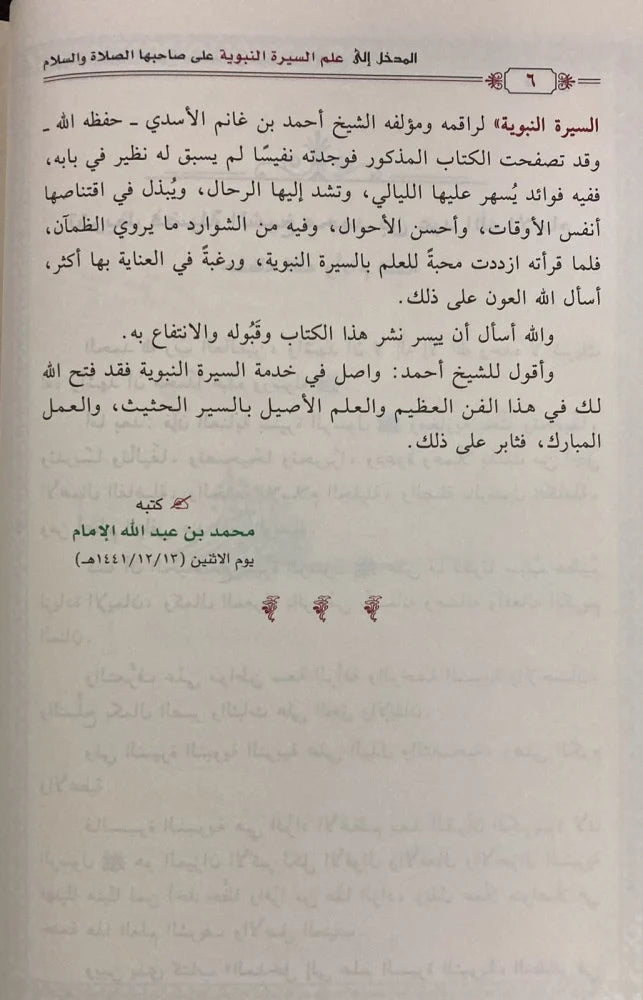 المدخل إلى علم السيرة النبوية على صاحبها الصلاة والسلام
٦
السيرة النبوية» لراقمه ومؤلفه الشيخ أحمد بن غانم الأسدي ـ حفظه الله ـ
وقد تصفحت الكتاب المذكور فوجدته نفيسًا لم يسبق له نظير في بابه،
ففيه فوائد يُسهر عليها الليالي، وتشد إليها الرحال، ويُبذل في اقتناصها
أنفس الأوقات، وأحسن الأحوال، وفيه من الشوارد ما يروي الظمآن،
فلما قرأته ازددت محبةً للعلم بالسيرة النبوية، ورغبةً في العناية بها أكثر،
أسأل الله العون على ذلك.
والله أسأل أن ييسر نشر هذا الكتاب وقَبُوله والانتفاع به.
وأقول للشيخ أحمد: واصل في خدمة السيرة النبوية فقد فتح الله
لك في هذا الفن العظيم والعلم الأصيل بالسير الحثيث، والعمل
المبارك، فثابر على ذلك.
كتبه
محمد بن عبد الله الإمام
يوم الاثنين (١٤٤١/١٢/١٣هـ)